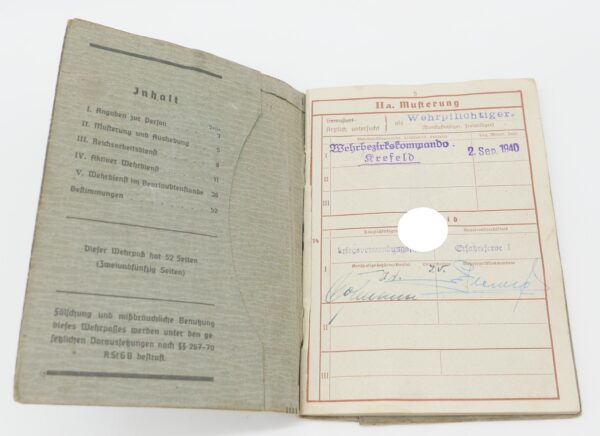 Inhalt
Seite
I. Angaben zur Person 3
II. Musterung und Aushebung 5
III. Reichsarbeitsdienst 8
IV. Aktiver Wehrdienst
V. Wehrdienst im Beurlaubtenstande
Bestimmungen 52
Dieser Wehrpaß hat 52 Seiten
(Zweiundfünfzig Seiten)
Fälschung und mißbräuchliche Benutzung
dieses Wehrpasses werden unter den ge-
setzlichen Voraussetzungen nach §§ 267-70
RStGB bestraft.
5
IIa. Musterung
ärztlich untersucht als Wehrpflichtiger.
I
Wehrbezirkskommando
Krefeld
2. Sep. 1940
II
III
14
kriegsverwendungs
Ersatzreserve I
I
I.V.
II
III